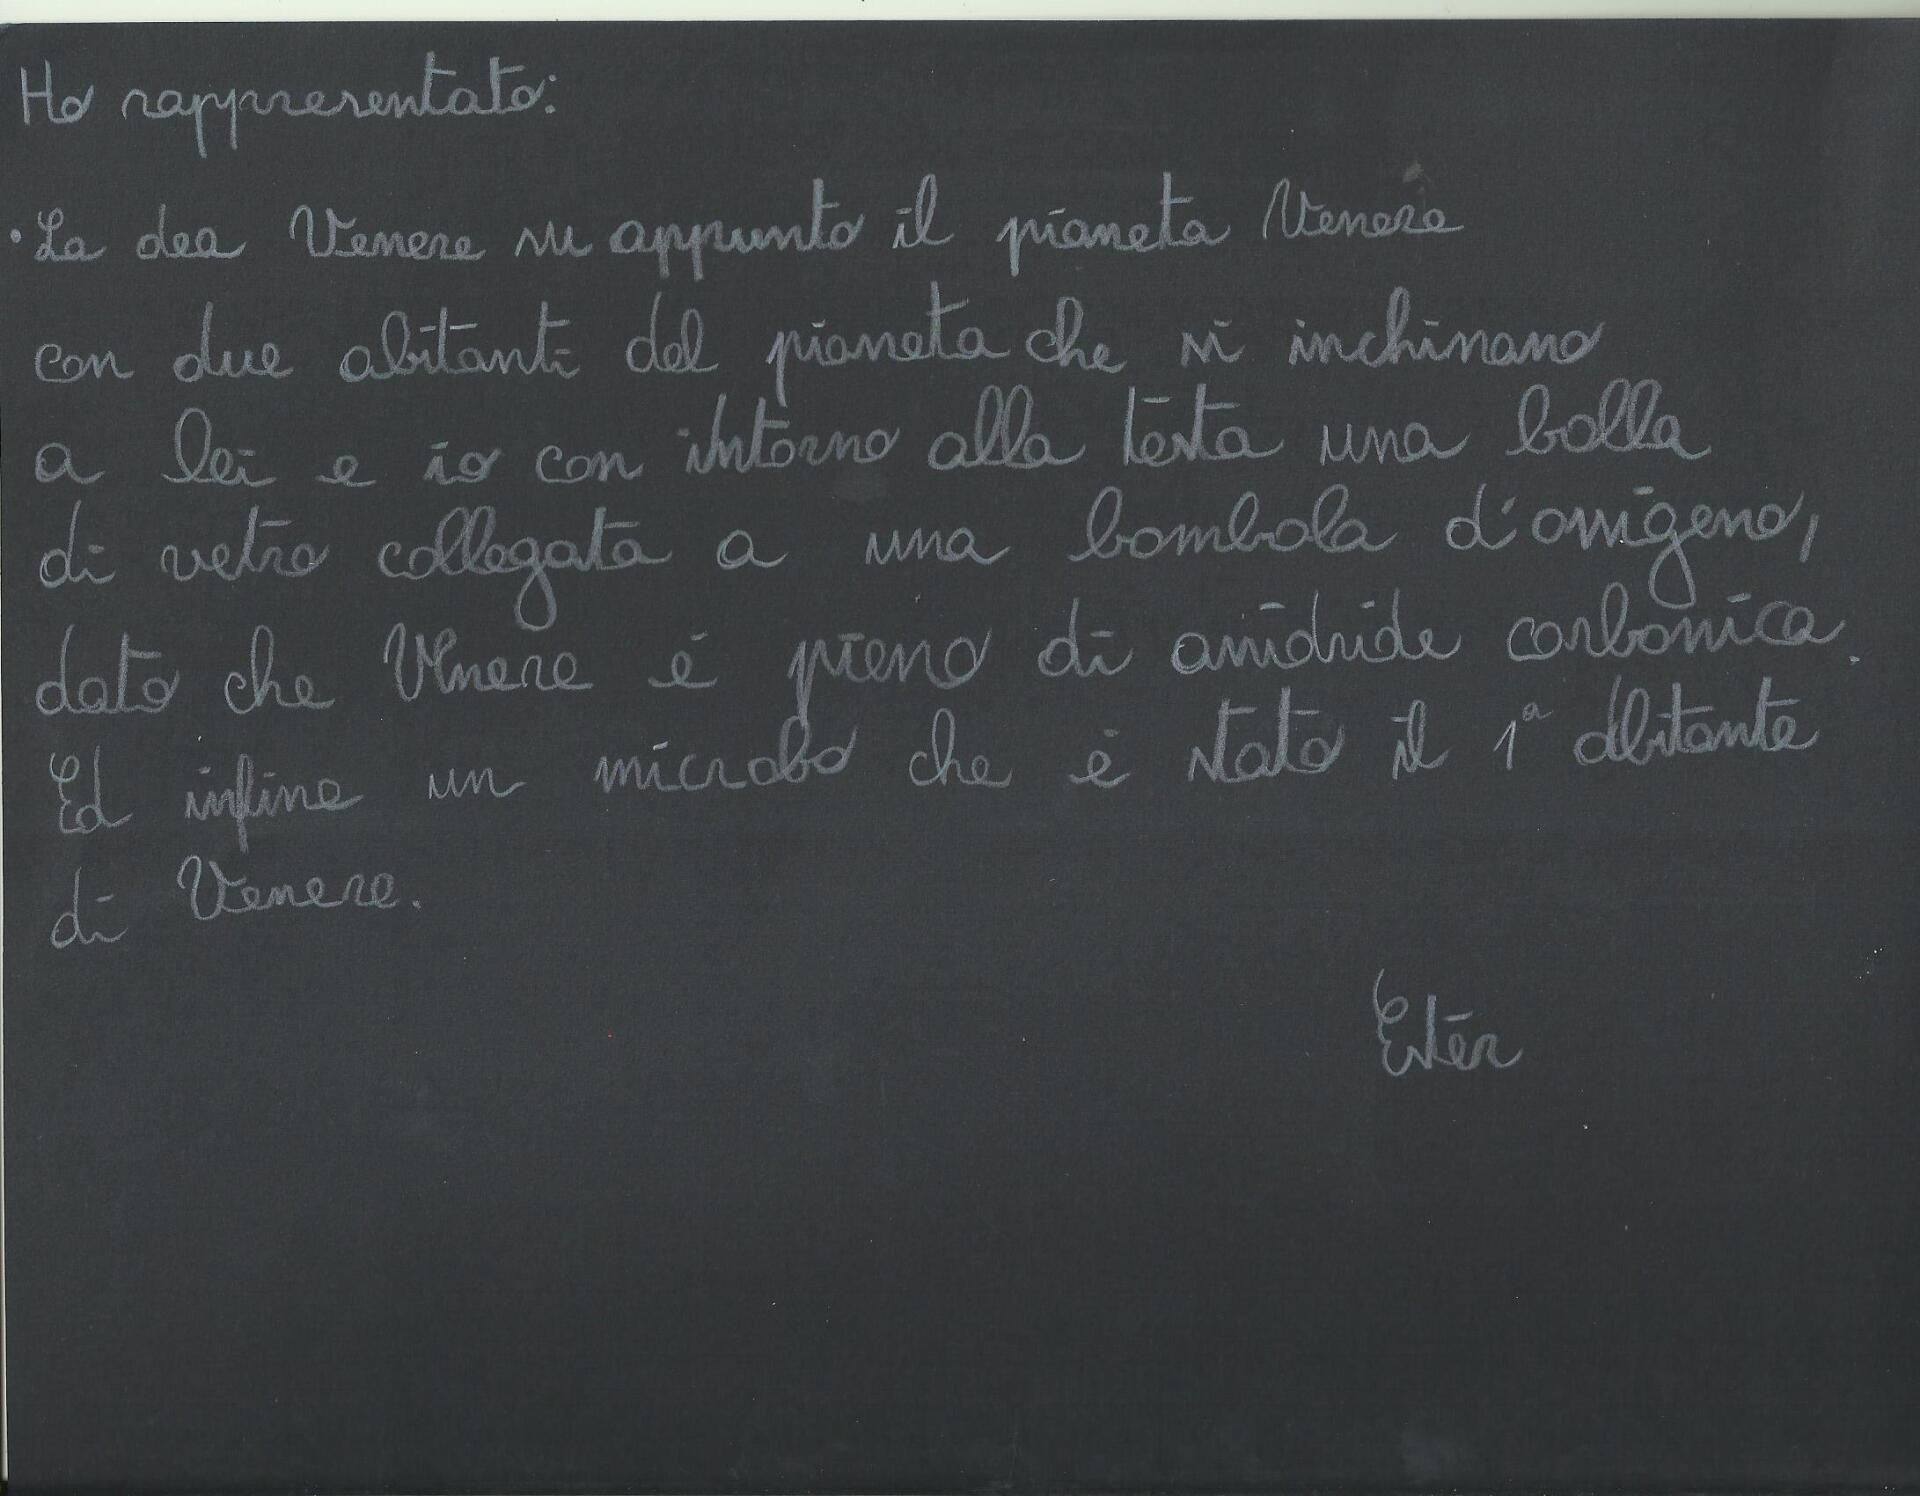 Ho rappresentato:
• La dea Venere su appunto il pianeta Venere
con due abitanti del pianeta che si inchinano
a lei e io con intorno alla testa una bolla
di vetro collegata a una bombola d'ossigeno,
dato che Venere é pieno di anidride carbonica.
Ed infine un microbo che è stato il 1ª abitante
di Venere.
Ester